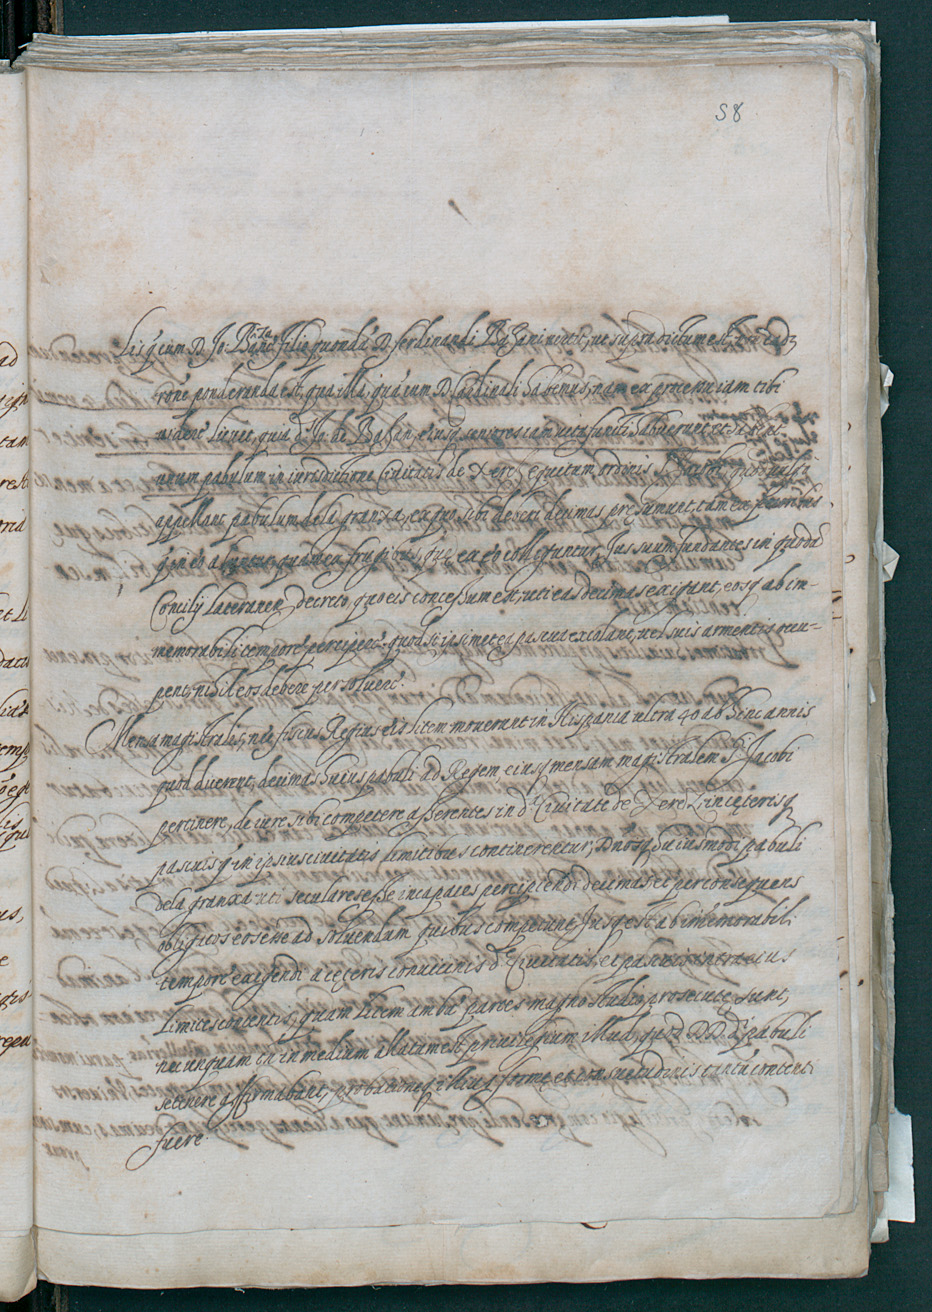 58
Lis q̃ cum D. Jo. Bap.ta filio quondã D. ferdinandi Bazani uertit, ut supra dictum est,
rõne ponderanda est, qua illa, quã cum D. Cardinali habemus, nam ex processu iam tibi
uidere licuit, quia d. Jo. de Bazan, eiusq. antecessiam usta
pabulum in iurisditione Ciuitatis de Xerez equitum ordinis
appellant pabulum dela granxa, ex quo sibi deberi decimas pręsumunt, tam ex
q̃ in eo aluntur, quam ex frugibus, quę ex eo colliguntur, Jus suum fundantes in quodã
Concilij Lateranen. decreto, quo eis concessum est, uti eas decimas exigant, eosq. ab im-
memorabili tempore percipere: quod si ipsimet ea pascua excolant, uel suis armentis
nihil eos debere persoluere.
Mensa magistralis, uel fiscus Regius eis litem mouerunt in Hispania ultra 40 ab hinc annis
quod dixerint, decimas huius pabuli ad Regem, eiusq. mensam magistralem S.ti Jacobi
pertinere, de iure sibi competere asserentes in d.a Ciuitate de Xerez, in cęteris q.
pascuis q̃ in ipsius ciuitatis limitibus continerentur, Dnosq. huiusmodi pabuli
dela granxa uti seculares esse incapaces percipiendi decimas et per consequens
obligatos eos esse ad soluendam quibus competunt, Jusq. est ab immemorabili
tempore exigendi a cęteris conuicinis d.ę Ciuitatis, et pascuis intra eius
limites contentis, quam litem ambę partes magno studio prosecutę sunt,
nec unquam in medium allatum est priuilegium illud, quod D.D. d. pabuli
se tenere affirmabant, probationeq. illius formę et consuetudinis
fuere.